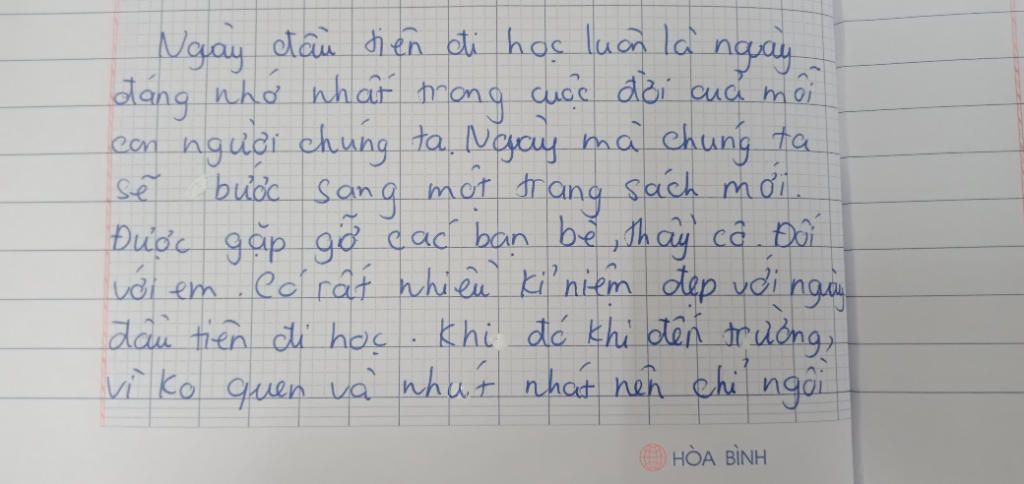 Ngày đầu tiên đi học luôn là ngày
đáng nhớ nhất trong cuộc đời cuả mỗi
con người chúng ta. Ngày mà chúng ta
sẽ bước sang một trang sách mới.
Được gặp gỡ các bạn bè, thầy cô. Đối
với em. Có rất nhiều kỉ niệm đẹp với ngày
đầu tiên đi học. Khi đó khi đến trường,
vì ko quen và nhút nhát nên chỉ ngồi
HÒA BÌNH